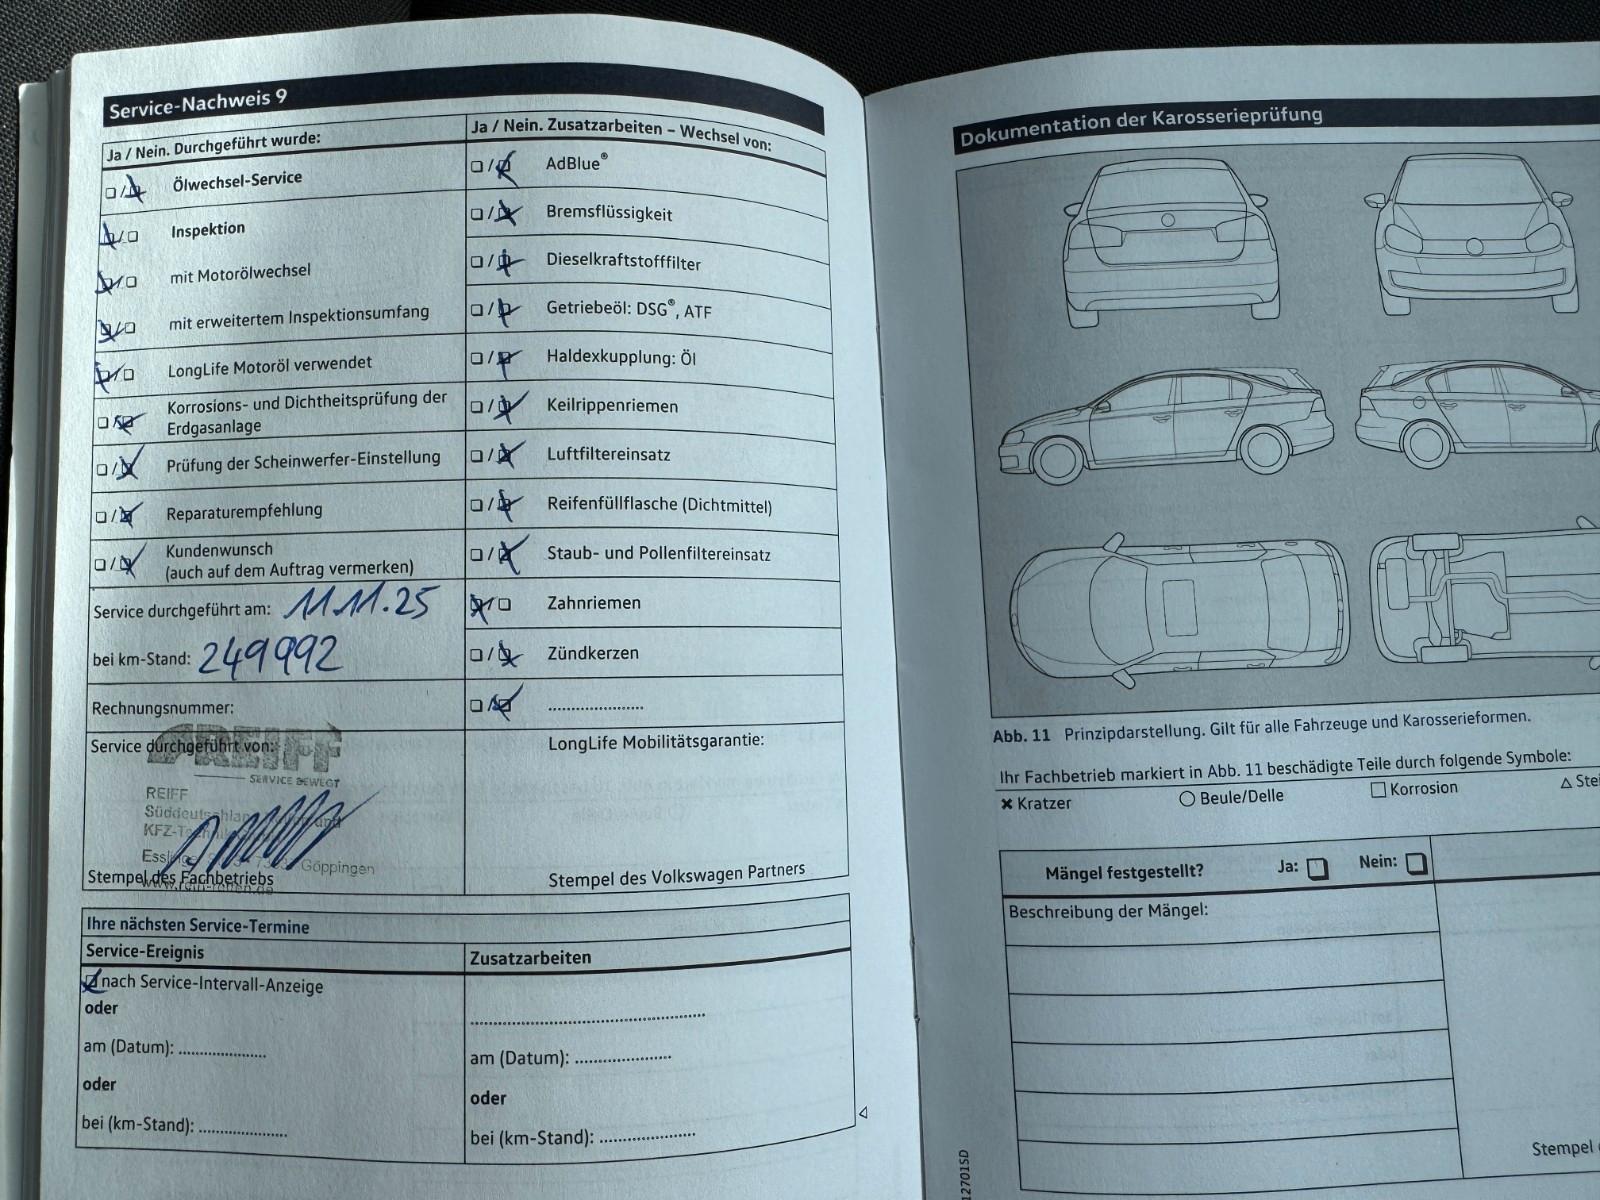 Service-Nachweis 9
Ja / Nein. Durchgeführt wurde:
Ölwechsel-Service
Inspektion
mit Motorölwechsel
mit erweitertem Inspektionsumfang
LongLife Motoröl verwendet
Korrosions- und Dichtheitsprüfung der
Erdgasanlage
Prüfung der Scheinwerfer-Einstellung
Reparaturempfehlung
Kundenwunsch
(auch auf dem Auftrag vermerken)
Service durchgeführt am: 11.11.25
bei km-Stand: 249992
Rechnungsnummer:
Service durchgeführt von:
REIFF
SERVICE BEWEGT
REIFF
Süddeutschland und
KFZ-Technik
Göppingen
Stempel des Fachbetriebs
Ja / Nein. Zusatzarbeiten – Wechsel von:
AdBlue®
Bremsflüssigkeit
Dieselkraftstofffilter
Getriebeöl: DSG®, ATF
Haldexkupplung: Öl
Keilrippenriemen
Luftfiltereinsatz
Reifenfüllflasche (Dichtmittel)
Staub- und Pollenfiltereinsatz
Zahnriemen
Zündkerzen
LongLife Mobilitätsgarantie:
Stempel des Volkswagen Partners
Ihre nächsten Service-Termine
Service-Ereignis
nach Service-Intervall-Anzeige
oder
am (Datum):
oder
bei (km-Stand):
Zusatzarbeiten
am (Datum):
oder
bei (km-Stand):
Dokumentation der Karosserieprüfung
Abb. 11 Prinzipdarstellung. Gilt für alle Fahrzeuge und Karosserieformen.
Ihr Fachbetrieb markiert in Abb. 11 beschädigte Teile durch folgende Symbole:
Kratzer
Beule/Delle
Korrosion
Stei
Mängel festgestellt? Ja: Nein:
Beschreibung der Mängel:
Stempel
12701SD